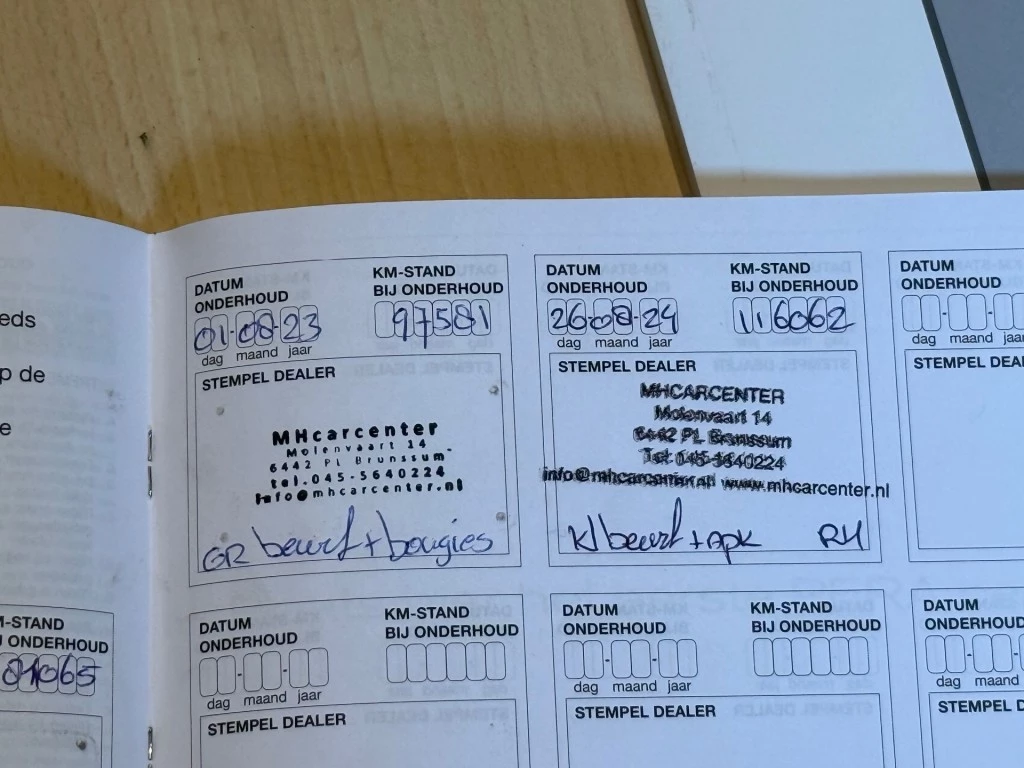 eds
p de
e
M-STAND
J ONDERHOUD
DATUM
ONDERHOUD
01-08-23
dag maand jaar
KM-STAND
BIJ ONDERHOUD
97581
STEMPEL DEALER
MHcarcenter
Molenvaart 14
6442 PL Brunssum
tel.045-5640224
info@mhcarcenter.nl
GR beurt + bougies
DATUM
ONDERHOUD
26-08-24
dag maand jaar
KM-STAND
BIJ ONDERHOUD
116062
STEMPEL DEALER
MHCARCENTER
Molenvaart 14
6442 PL Brunssum
Tel: 045-5640224
info@mhcarcenter.nl www.mhcarcenter.nl
Kl beurt + apk RH
DATUM
ONDERHOUD
dag maand jaa
STEMPEL DEAL
DATUM
ONDERHOUD
dag maand jaar
KM-STAND
BIJ ONDERHOUD
STEMPEL DEALER
DATUM
ONDERHOUD
dag maand jaar
KM-STAND
BIJ ONDERHOUD
STEMPEL DEALER
DATUM
ONDERHOUD
dag maand ja
STEMPEL DE